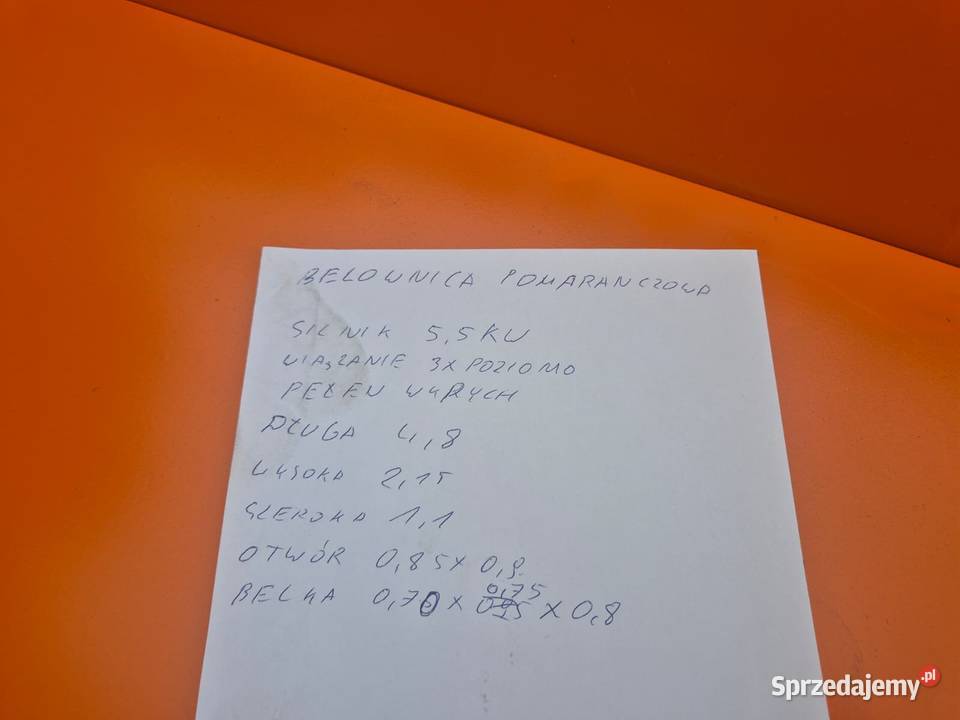 BELOWNICA POMARAŃCZOWA
SILNIK 5,5KW
WIĄZANIE 3X POZIOMO
PEŁEN WYRYCH
DŁUGA 4,8
WYSOKA 2,15
SZEROKA 1,1
OTWÓR 0,85X 0,9
BELKA 0,70 X 0,75 X 0,8
Sprzedajemy.pl